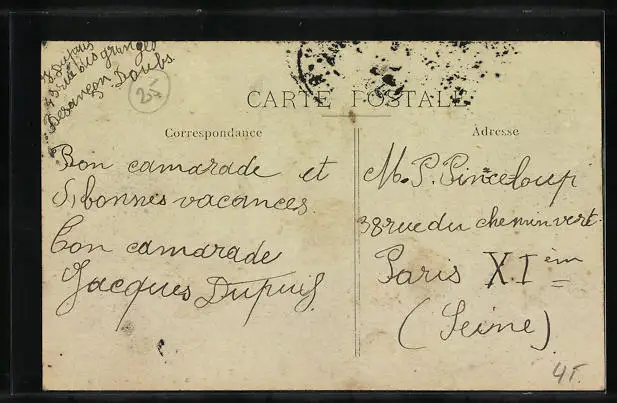 J. Dupuis
43 rue des granges
Besançon Doubs
CARTE POSTALE
Correspondance
Adresse
Bon camarade et
bonnes vacances
Bon camarade
Jacques Dupuis
M. P. Pinceloup
38 rue du chemin vert
Paris XIèm
(Seine)
4F.